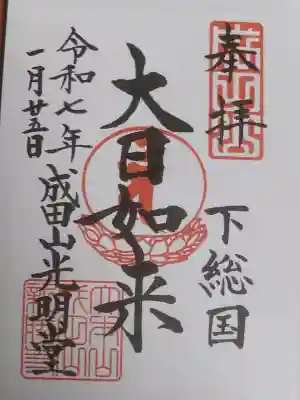 奉拝
下総国
大日如来
令和七年
一月廿五日
成田山光明堂